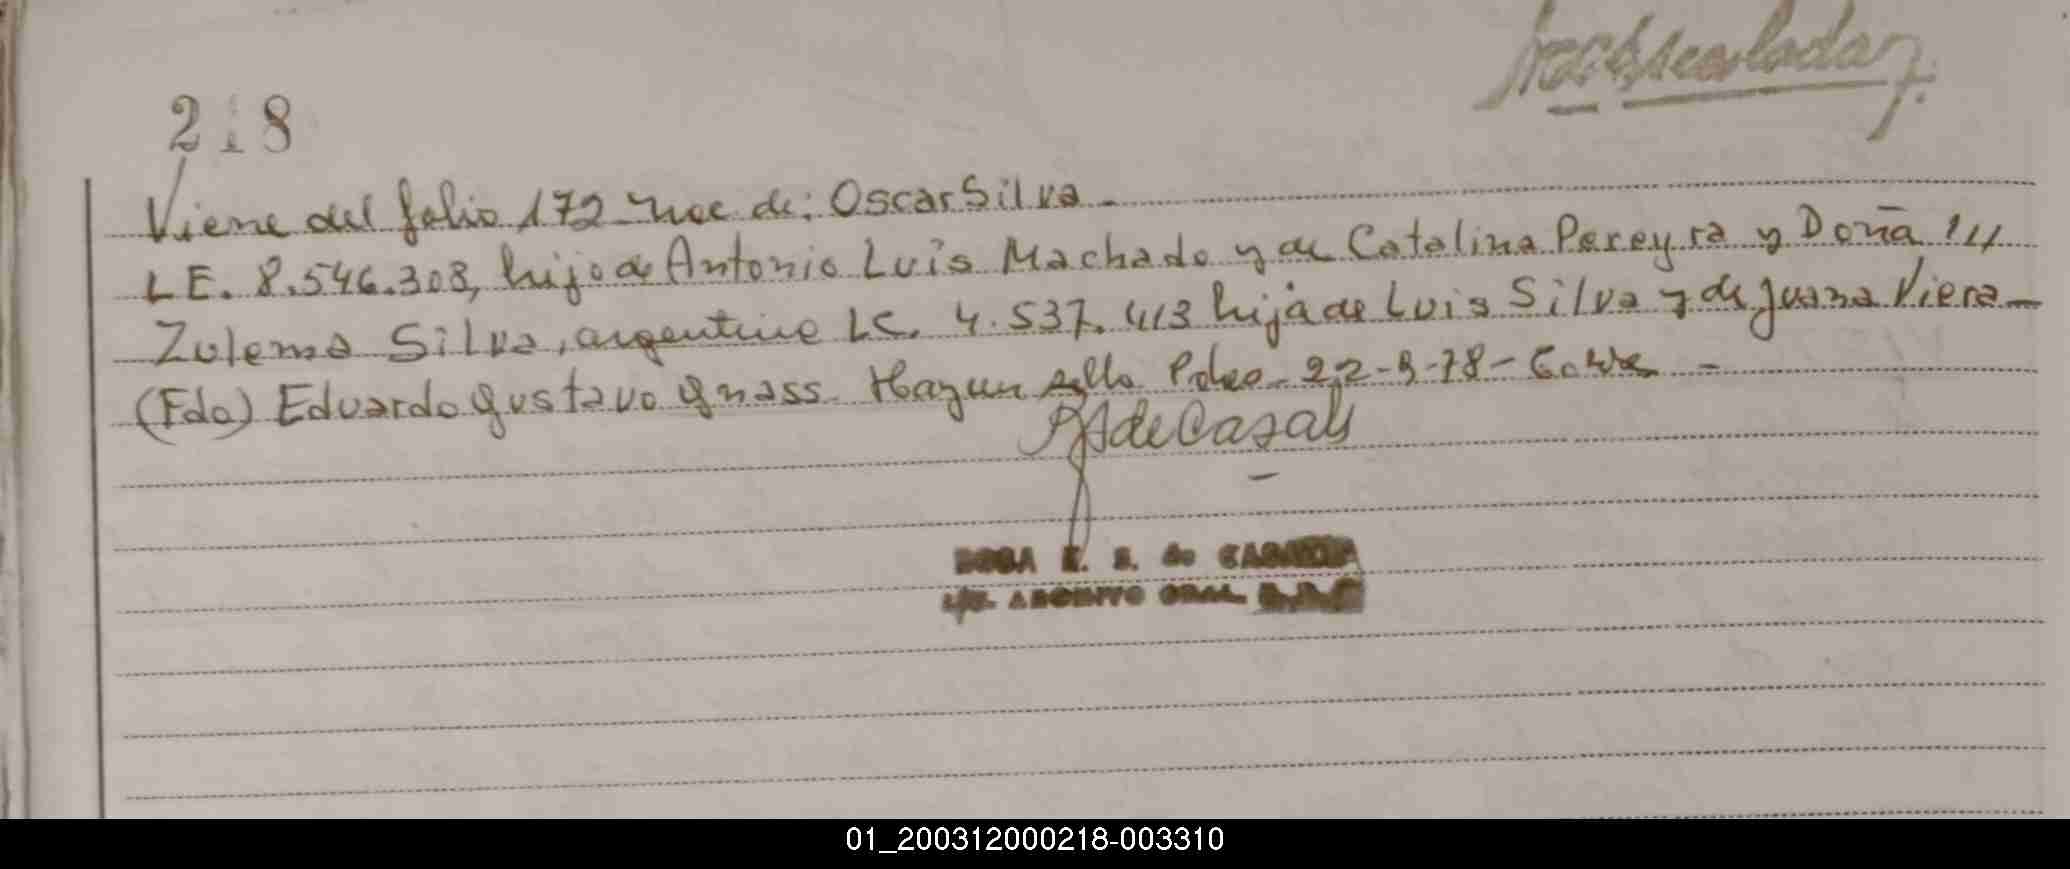 218
Viene del folio 172 nac de: Oscar Silva -
L E. 8.546.303, hijo de Antonio Luis Machado y de Catalina Pereyra y Doña ///
Zulema Silva, argentina LC. 4.537.413 hija de Luis Silva y de Juana Viera -
(Fdo) Eduardo Gustavo Gnass. Hay un sello Pdeo - 22-9-78 -
de Casali
ROSA E. S. de
ARCHIVO GRAL.
01_200312000218-003310